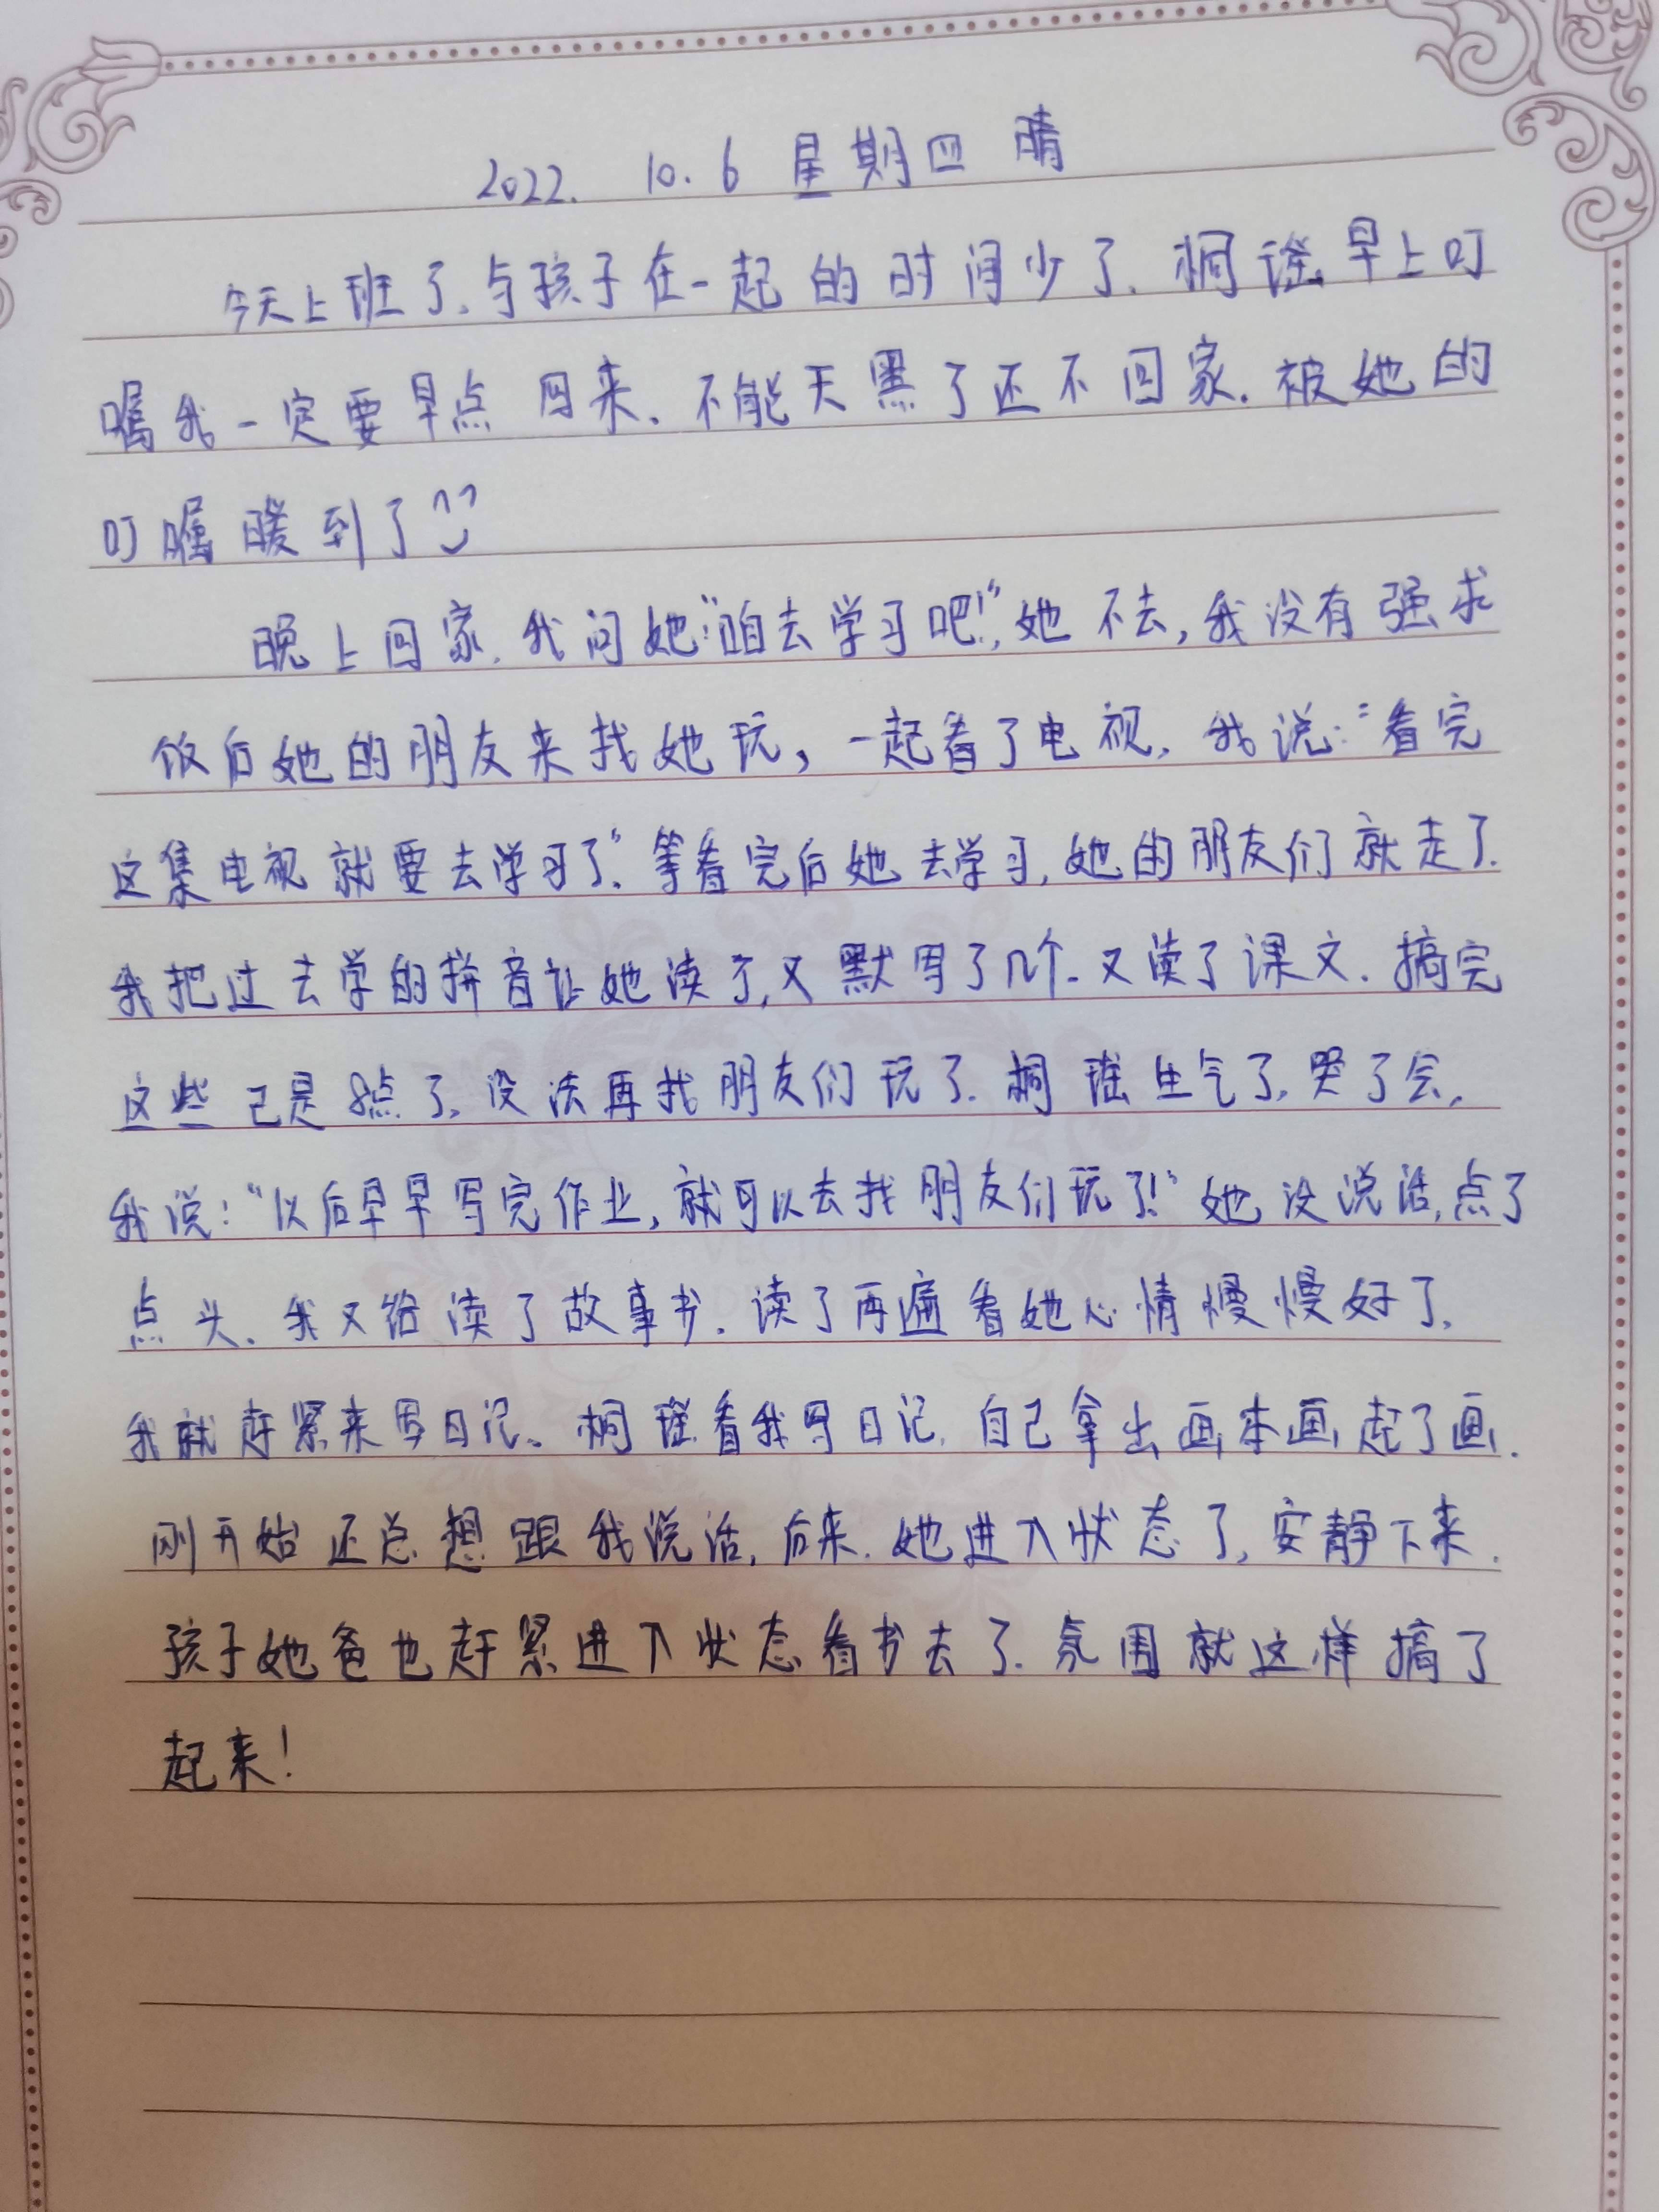 2022. 10. 6 星期四 晴
今天上班了.与孩子在一起的时间少了.桐瑶早上叮
嘱我一定要早点回来.不能天黑了还不回家.被她的
叮嘱暖到了
晚上回家.我问她:"咱去学习吧!",她不去,我没有强求
饭后她的朋友来找她玩,一起看了电视.我说:"看完
这集电视就要去学习了."等看完后她去学习,她的朋友们就走了.
我把过去学的拼音让她读了,又默写了几个.又读了课文.搞完
这些已是8点了.没法再找朋友们玩了.桐瑶生气了,哭了会,
我说:"以后早早写完作业,就可以去找朋友们玩了!"她没说话,点了
点头.我又给读了故事书.读了两遍看她心情慢慢好了.
我就赶紧来写日记.桐瑶看我写日记.自己拿出画本画起了画.
刚开始还总想跟我说话,后来.她进入状态了,安静下来.
孩子她爸也赶紧进入状态看书去了.氛围就这样搞了
起来!
VECTOR